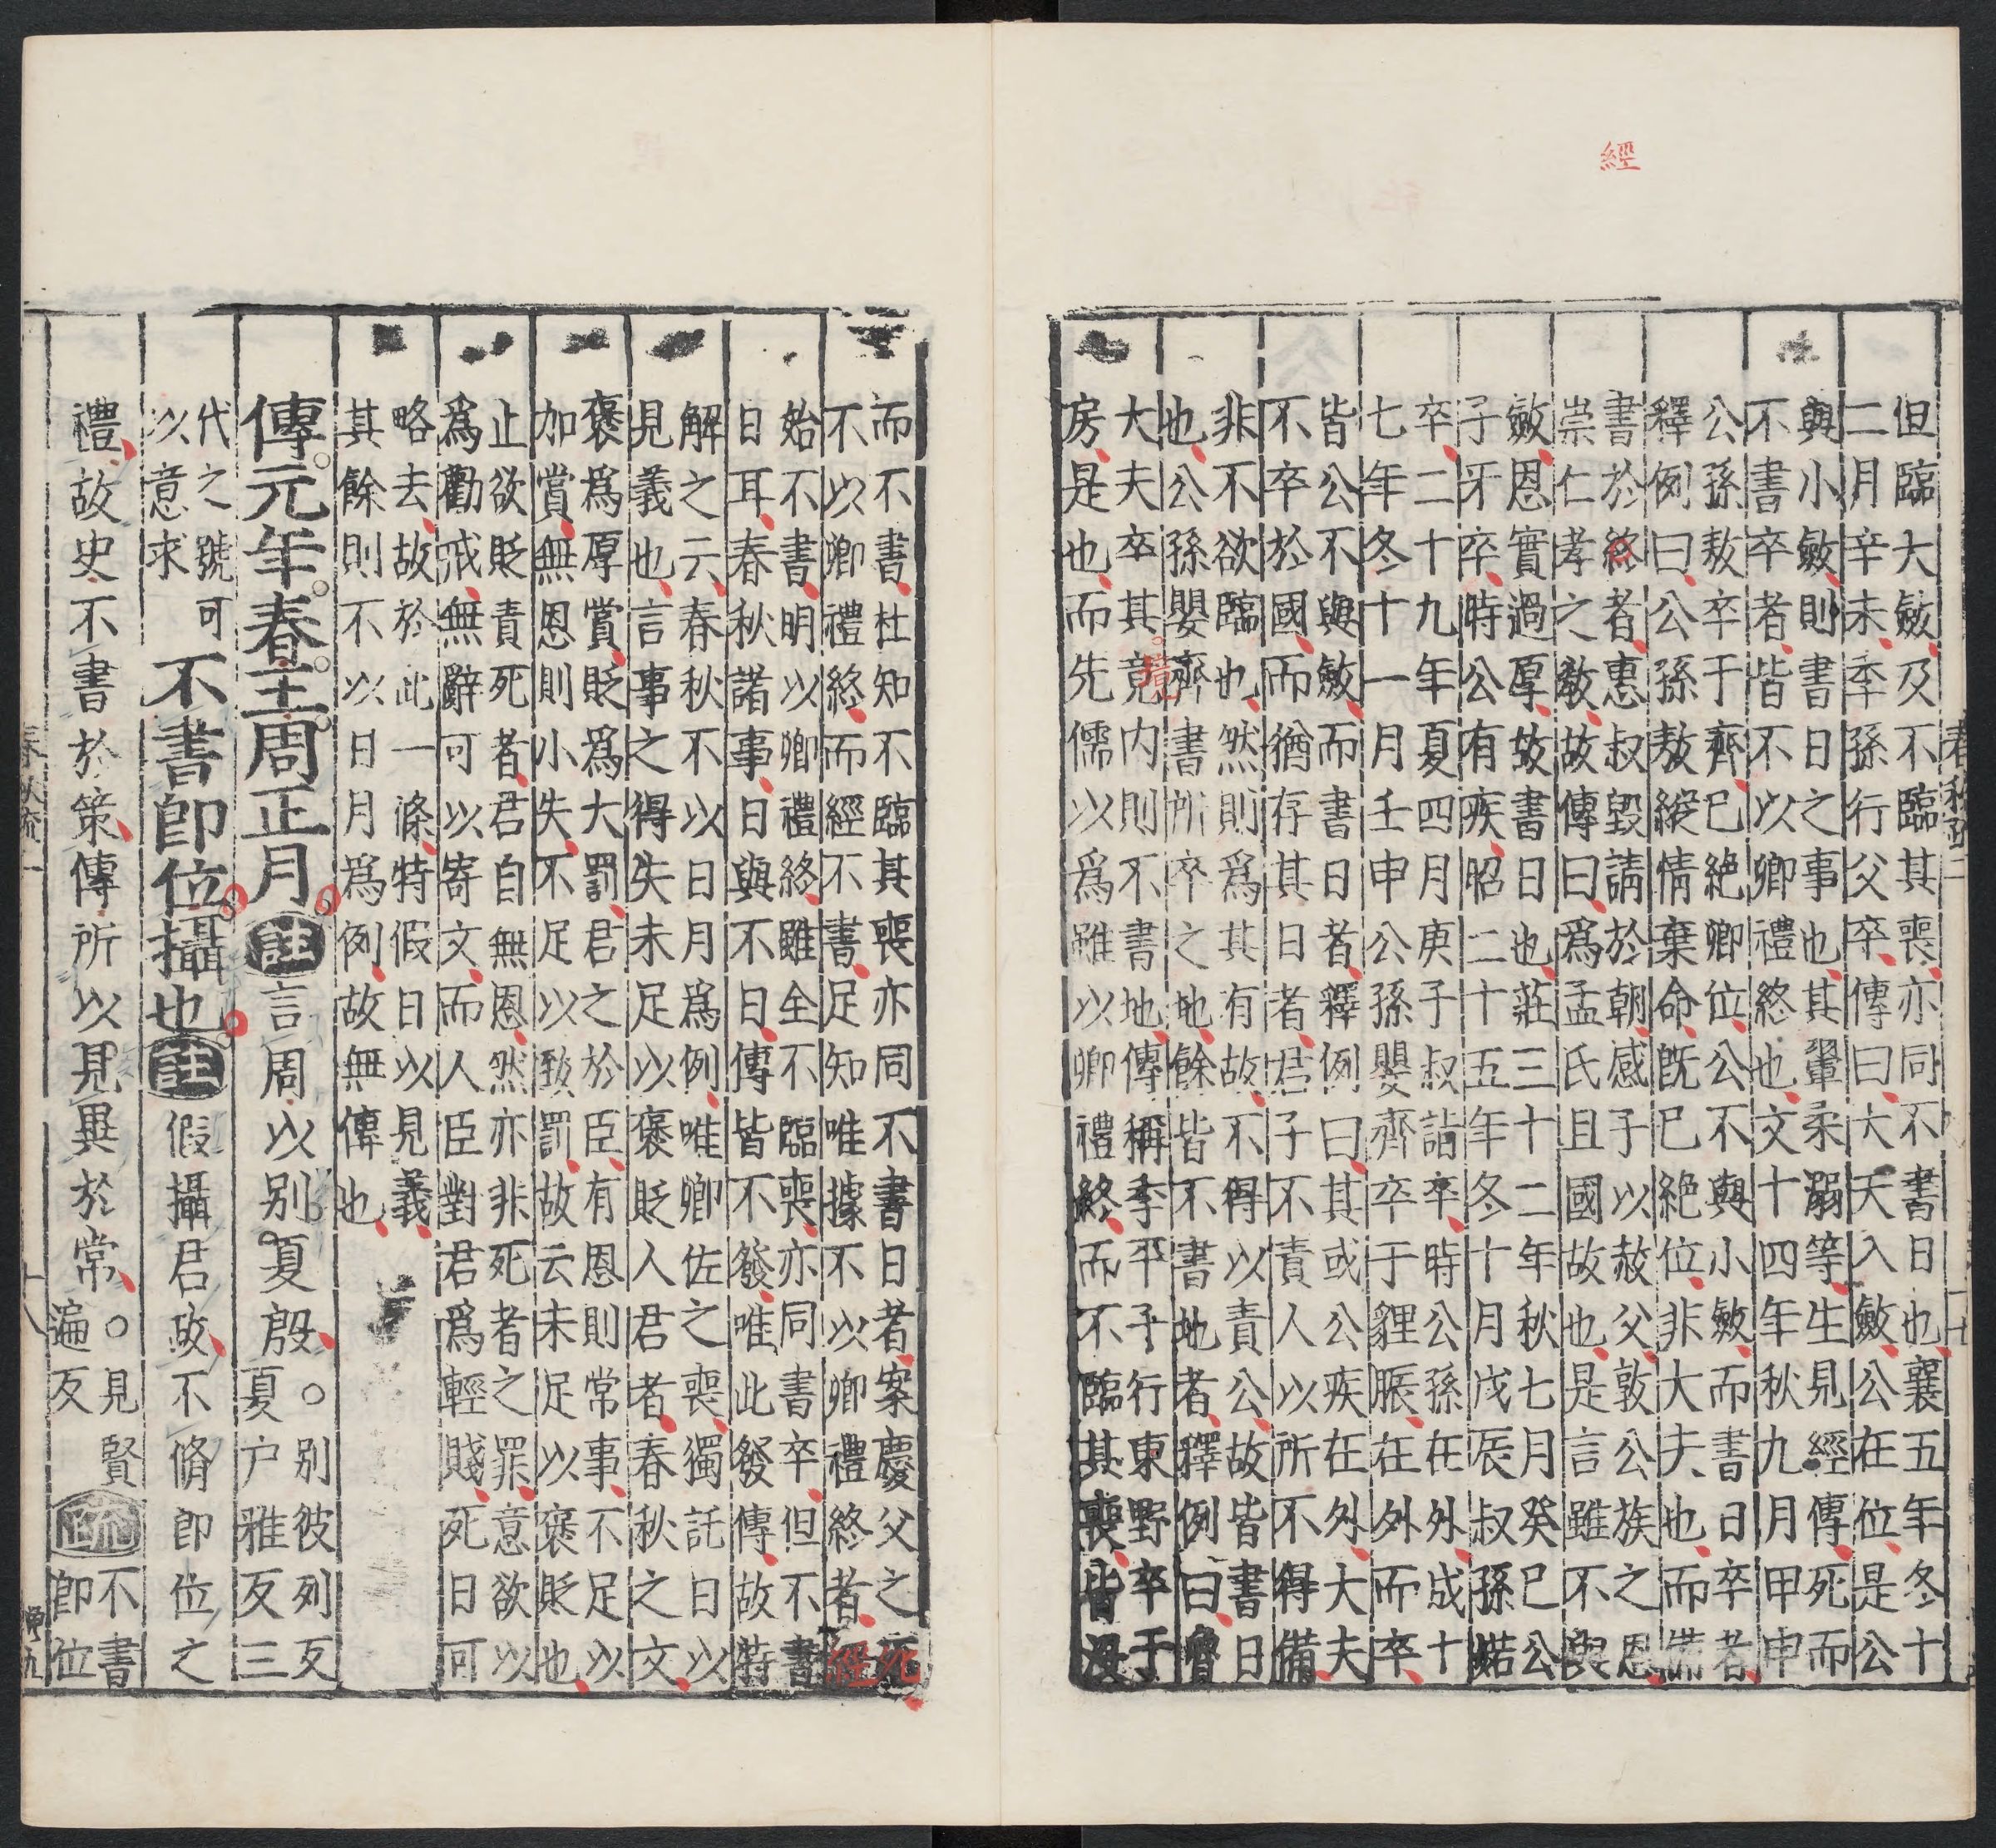 經
但臨大斂及不臨其喪亦同不書日也襄五年冬十
二月辛未季孫行父卒傳曰大夫入斂公在位是公
與小斂則書日之事也其翬柔溺等生見經傳死而
不書卒者皆不以卿禮終也文十四年秋九月甲申
公孫敖卒于齊已絶卿位公不與小斂而書日卒者
釋例曰公孫敖縱情棄命既已絶位非大夫也而備
書於終者惠叔毀請於朝感子以赦父敦公族之恩
崇仁孝之敎故傳曰爲孟氏且國故也是言雖不與
斂恩實過厚故書日也莊三十二年秋七月癸巳公
子牙卒時公有疾昭二十五年冬十月戊辰叔孫婼
卒二十九年夏四月庚子叔詣卒時公孫在外成十
七年冬十一月壬申公孫嬰齊卒于貍脤在外而卒
皆公不與斂而書日者釋例曰其或公疾在外大夫
不卒於國而猶存其日者君子不責人以所不得備
非不欲臨也然則爲其有故不得以責公故皆書日
也公孫嬰齊書所卒之地餘皆不書地者釋例曰魯
大夫卒其竟内則不書地傳稱季平子行東野卒于
房是也而先儒以爲雖以卿禮終而不臨其喪皆没
而不書杜知不臨其喪亦同不書日者案慶父之死
不以卿禮終而經不書足知唯據不以卿禮終者經
始不書明以卿禮終雖全不臨喪亦同書卒但不書
日耳春秋諸事日與不日傳皆不發唯此發傳故特
解之云春秋不以日月爲例唯卿佐之喪獨託日以
見義也言事之得失未足以褒貶人君者春秋之文
褒爲厚賞貶爲大罰君之於臣有恩則常事不足以
加賞無恩則小失不足以致罰故云未足以褒貶也
止欲貶責死者君自無恩然亦非死者之罪意欲以
爲勸戒無辭可以寄文而人臣對君爲輕賤死日可
略去故於此一條特假日以見義
其餘則不以日月爲例故無傳也
傳元年春王周正月註言周以别夏殷○别彼列反
夏户雅反三
代之號可
以意求
不書卽位攝也註假攝君政不脩卽位之
禮故史不書於策傳所以見異於常○見賢
遍反
疏不書
卽位